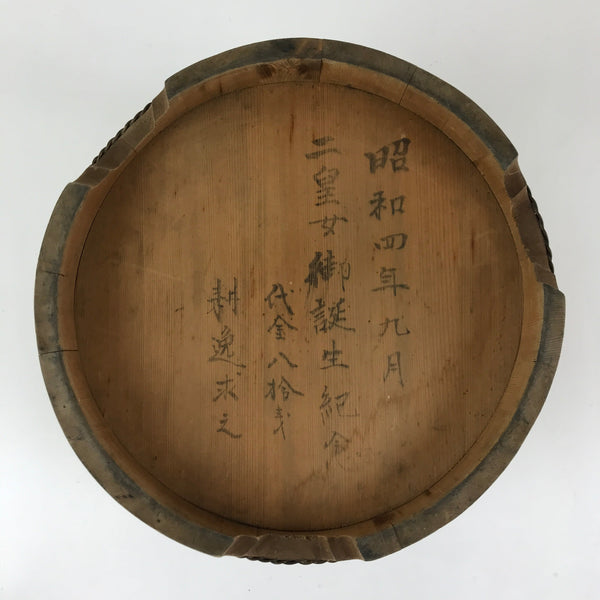 昭和四年九月
二皇女御誕生紀念
代金八拾戋
耕逸求之